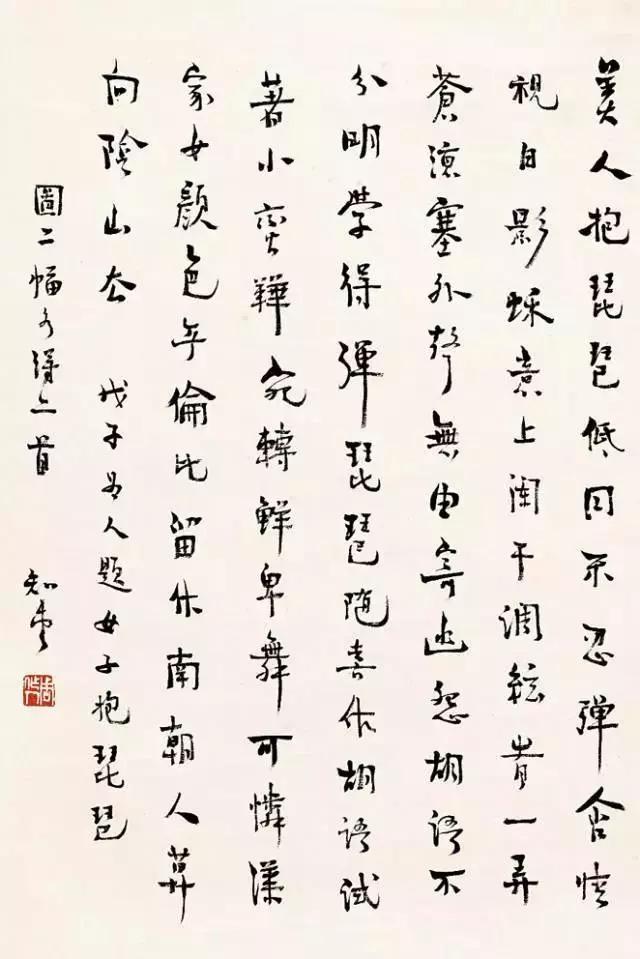 美人抱琵琶低回不忍彈含情
視日影意上闌干調絃一弄
蒼涼塞外聲無由寄幽怨胡語不
分明學得彈琵琶隨喜作胡語試
著小蠻鞾宛轉鮮卑舞可憐漢
家女顏色倫比留作南朝人莫
向陰山去 戊子為人題女子抱琵琶
圖二幅各得二首
知堂